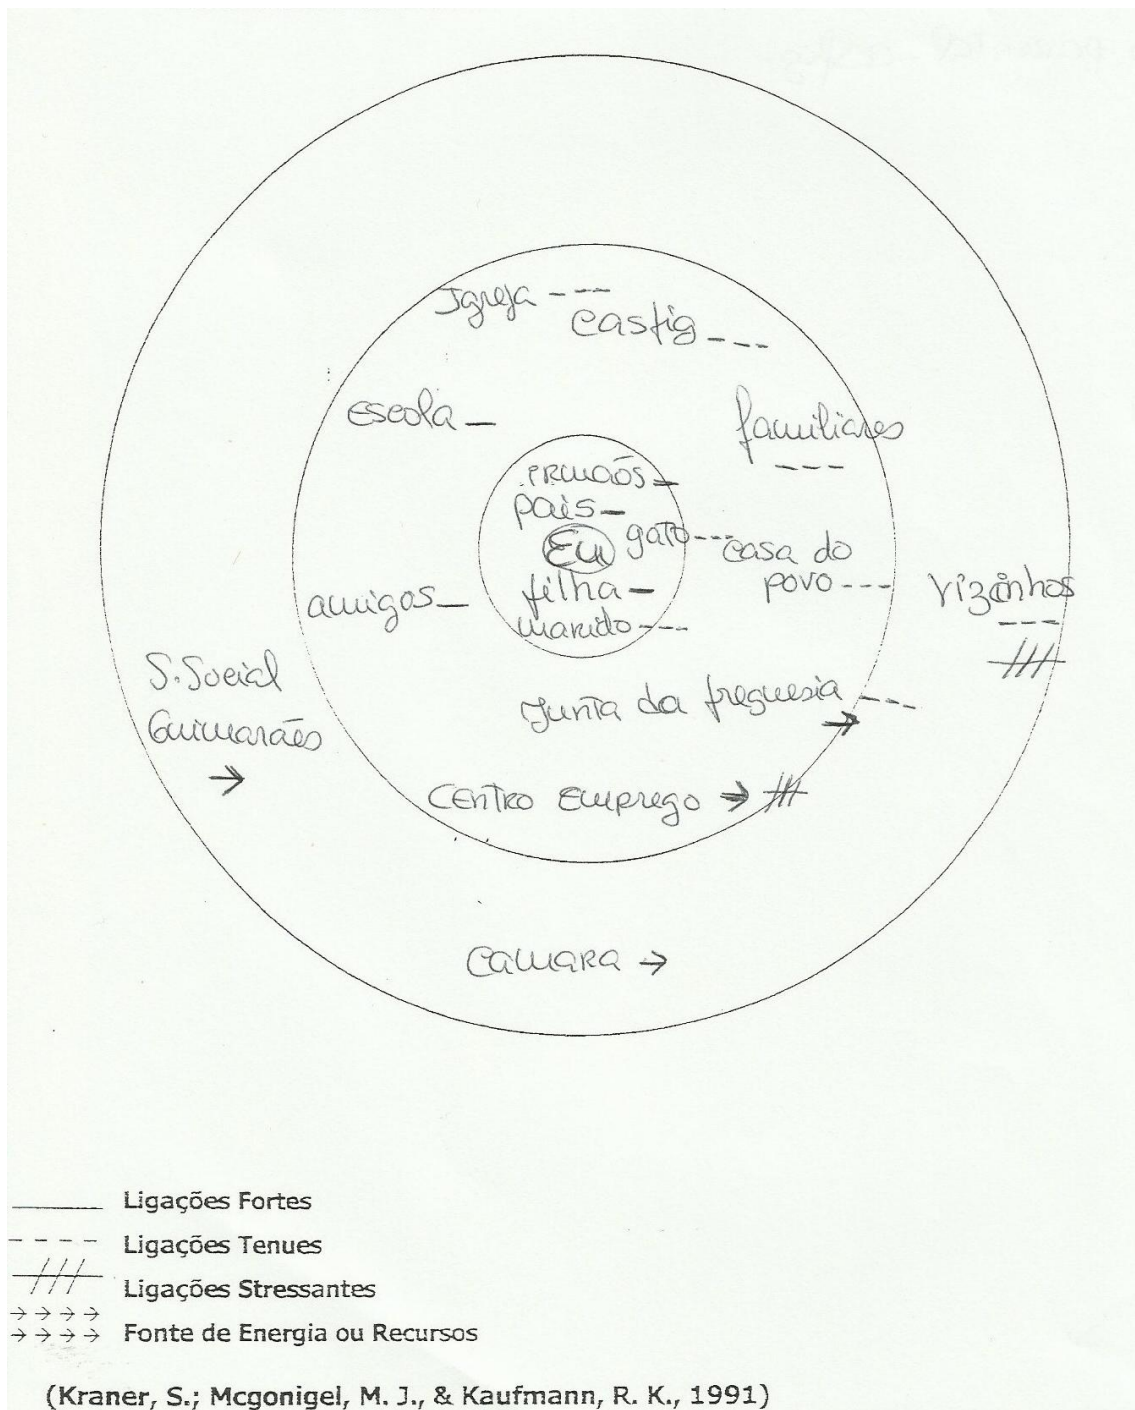 Igreja
Castig
escola
familiares
irmãos
pais
Eu
gato
casa do
povo
filha
amigos
marido
vizinhos
S. Social
Guimarães
Junta da freguesia
Centro Emprego
Camara
Ligações Fortes
Ligações Tenues
Ligações Stressantes
Fonte de Energia ou Recursos
(Kraner, S.; Mcgonigel, M. J., & Kaufmann, R. K., 1991)